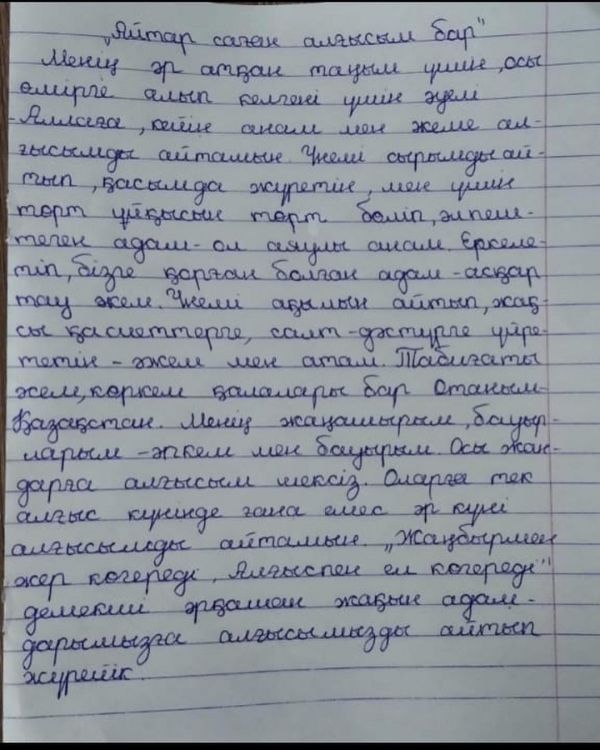 „Айтар саған алғысым бар"
Менің әр атқан таңым үшін, осы
өмірге алып келгені үшін әуелі
Аллаға, кейін анам мен әкеме ал-
ғысымды айтамын. Үнемі сырымды ай-
тып, қасымда жүретін, мен үшін
төрт ұйқысын төрт бөліп, әлпеш-
теген адам - ол аяулы анам. Еркеле-
тіп, бізге қорған болған адам - асқар
тау әкем. Үнемі ақылын айтып, жақ-
сы қасиеттерге, салт-дәстүрге үйре-
тетін - әжем мен атам. Табиғаты
әсем, көркем қалалары бар Отаным-
Қазақстан. Менің жанашырым, бауыр-
ларым - әпкем мен бауырым. Осы жан-
дарға алғысым шексіз. Оларға тек
алғыс күнінде ғана емес әр күні
алғысымды айтамын. „Жаңбырмен
жер көгереді, Алғыспен ел көгереді"
демекші әрқашан жақын адам-
дарымызға алғысымызды айтып
жүрейік.